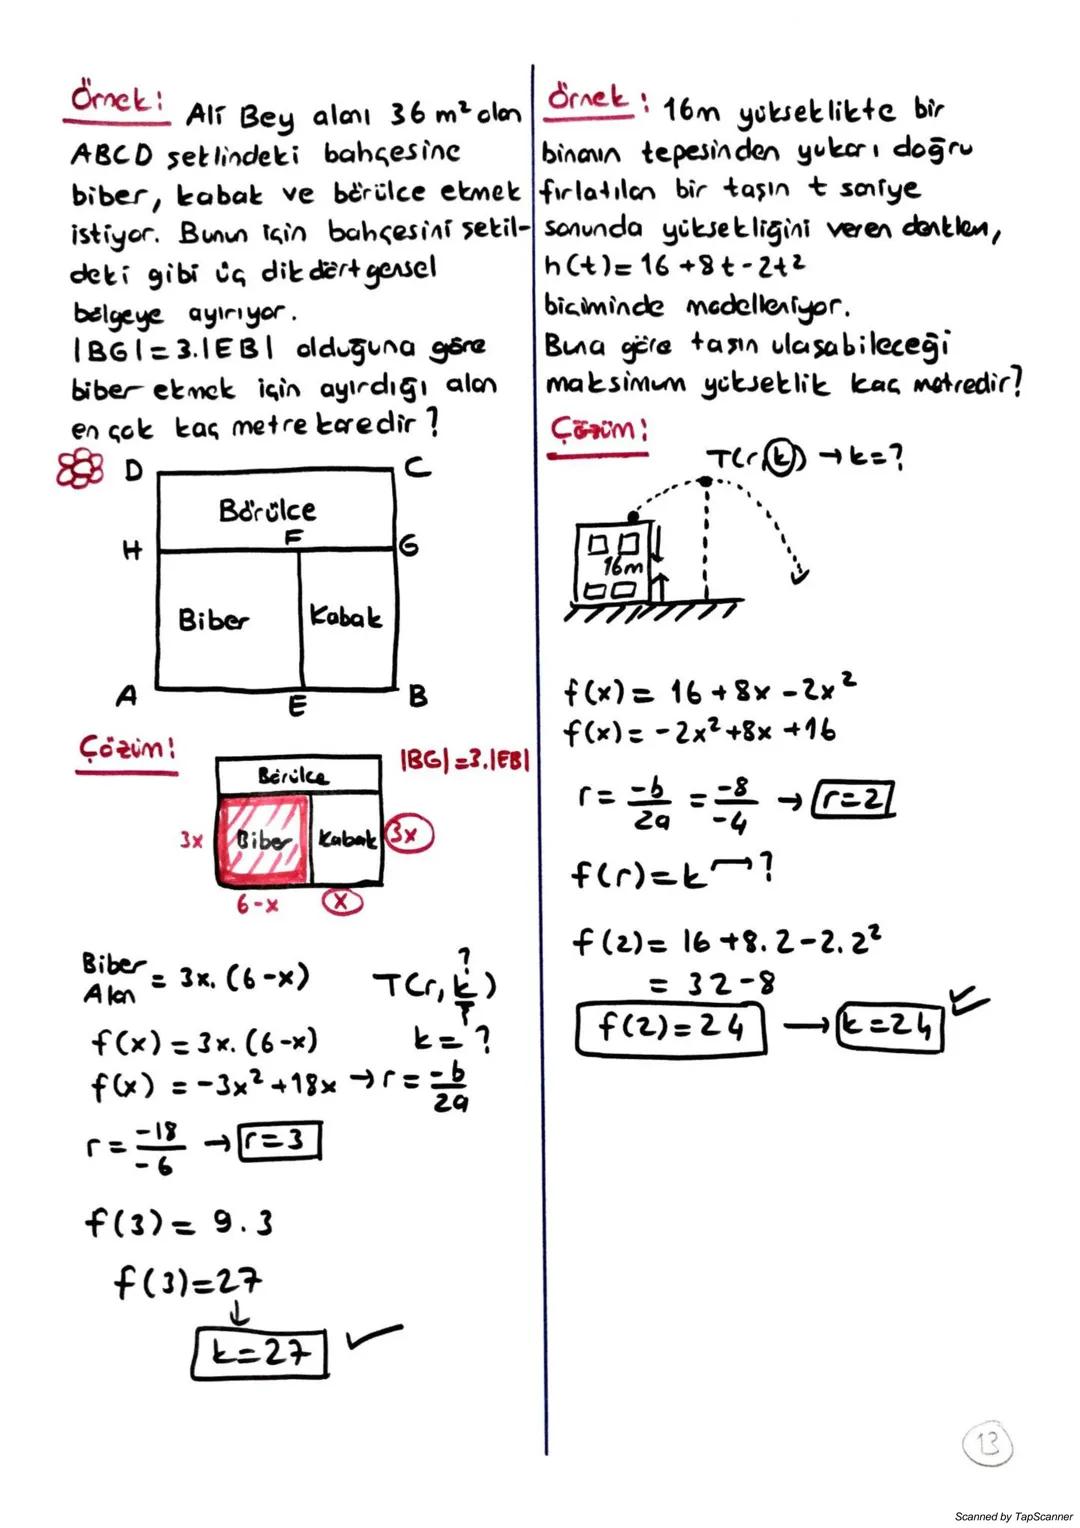 Örnek: Ali Bey alanı 36 m² olan
ABCD şeklindeki bahçesine
biber, kabak ve börülce ekmek
istiyor. Bunun için bahçesini şekil-
deki gibi üç dikdörtgensel
bölgeye ayırıyor.
|BG|=3.|EB| olduğuna göre
biber ekmek için ayırdığı alan
en çok kaç metre karedir?
D C
Börülce
H F G
Biber Kabak
A E B
Çözüm:
|BG|=3.|EB|
Börülce
3x Biber Kabak 3x
6-x x
Biber Alan = 3x.(6-x) T(r,k)
?
f(x) = 3x.(6-x) k=?
f(x) = -3x²+18x → r = -b/2a
r = -18/-6 → r=3
f(3) = 9.3
f(3)=27
↓
k=27 ✓
Örnek: 16m yükseklikte bir
binanın tepesinden yukarı doğru
fırlatılan bir taşın t saniye
sonunda yüksekliğini veren denklem,
h(t)=16+8t-2t²
biçiminde modelleniyor.
Buna göre taşın ulaşabileceği
maksimum yükseklik kaç metredir?
Çözüm:
T(r,k) → k=?
16m
f(x) = 16+8x-2x²
f(x) = -2x²+8x+16
r = -b/2a = -8/-4 → r=2
f(r)=k → ?
f(2) = 16+8.2-2.2²
= 32-8
f(2)=24 → k=24 ✓
13
Scanned by TapScanner